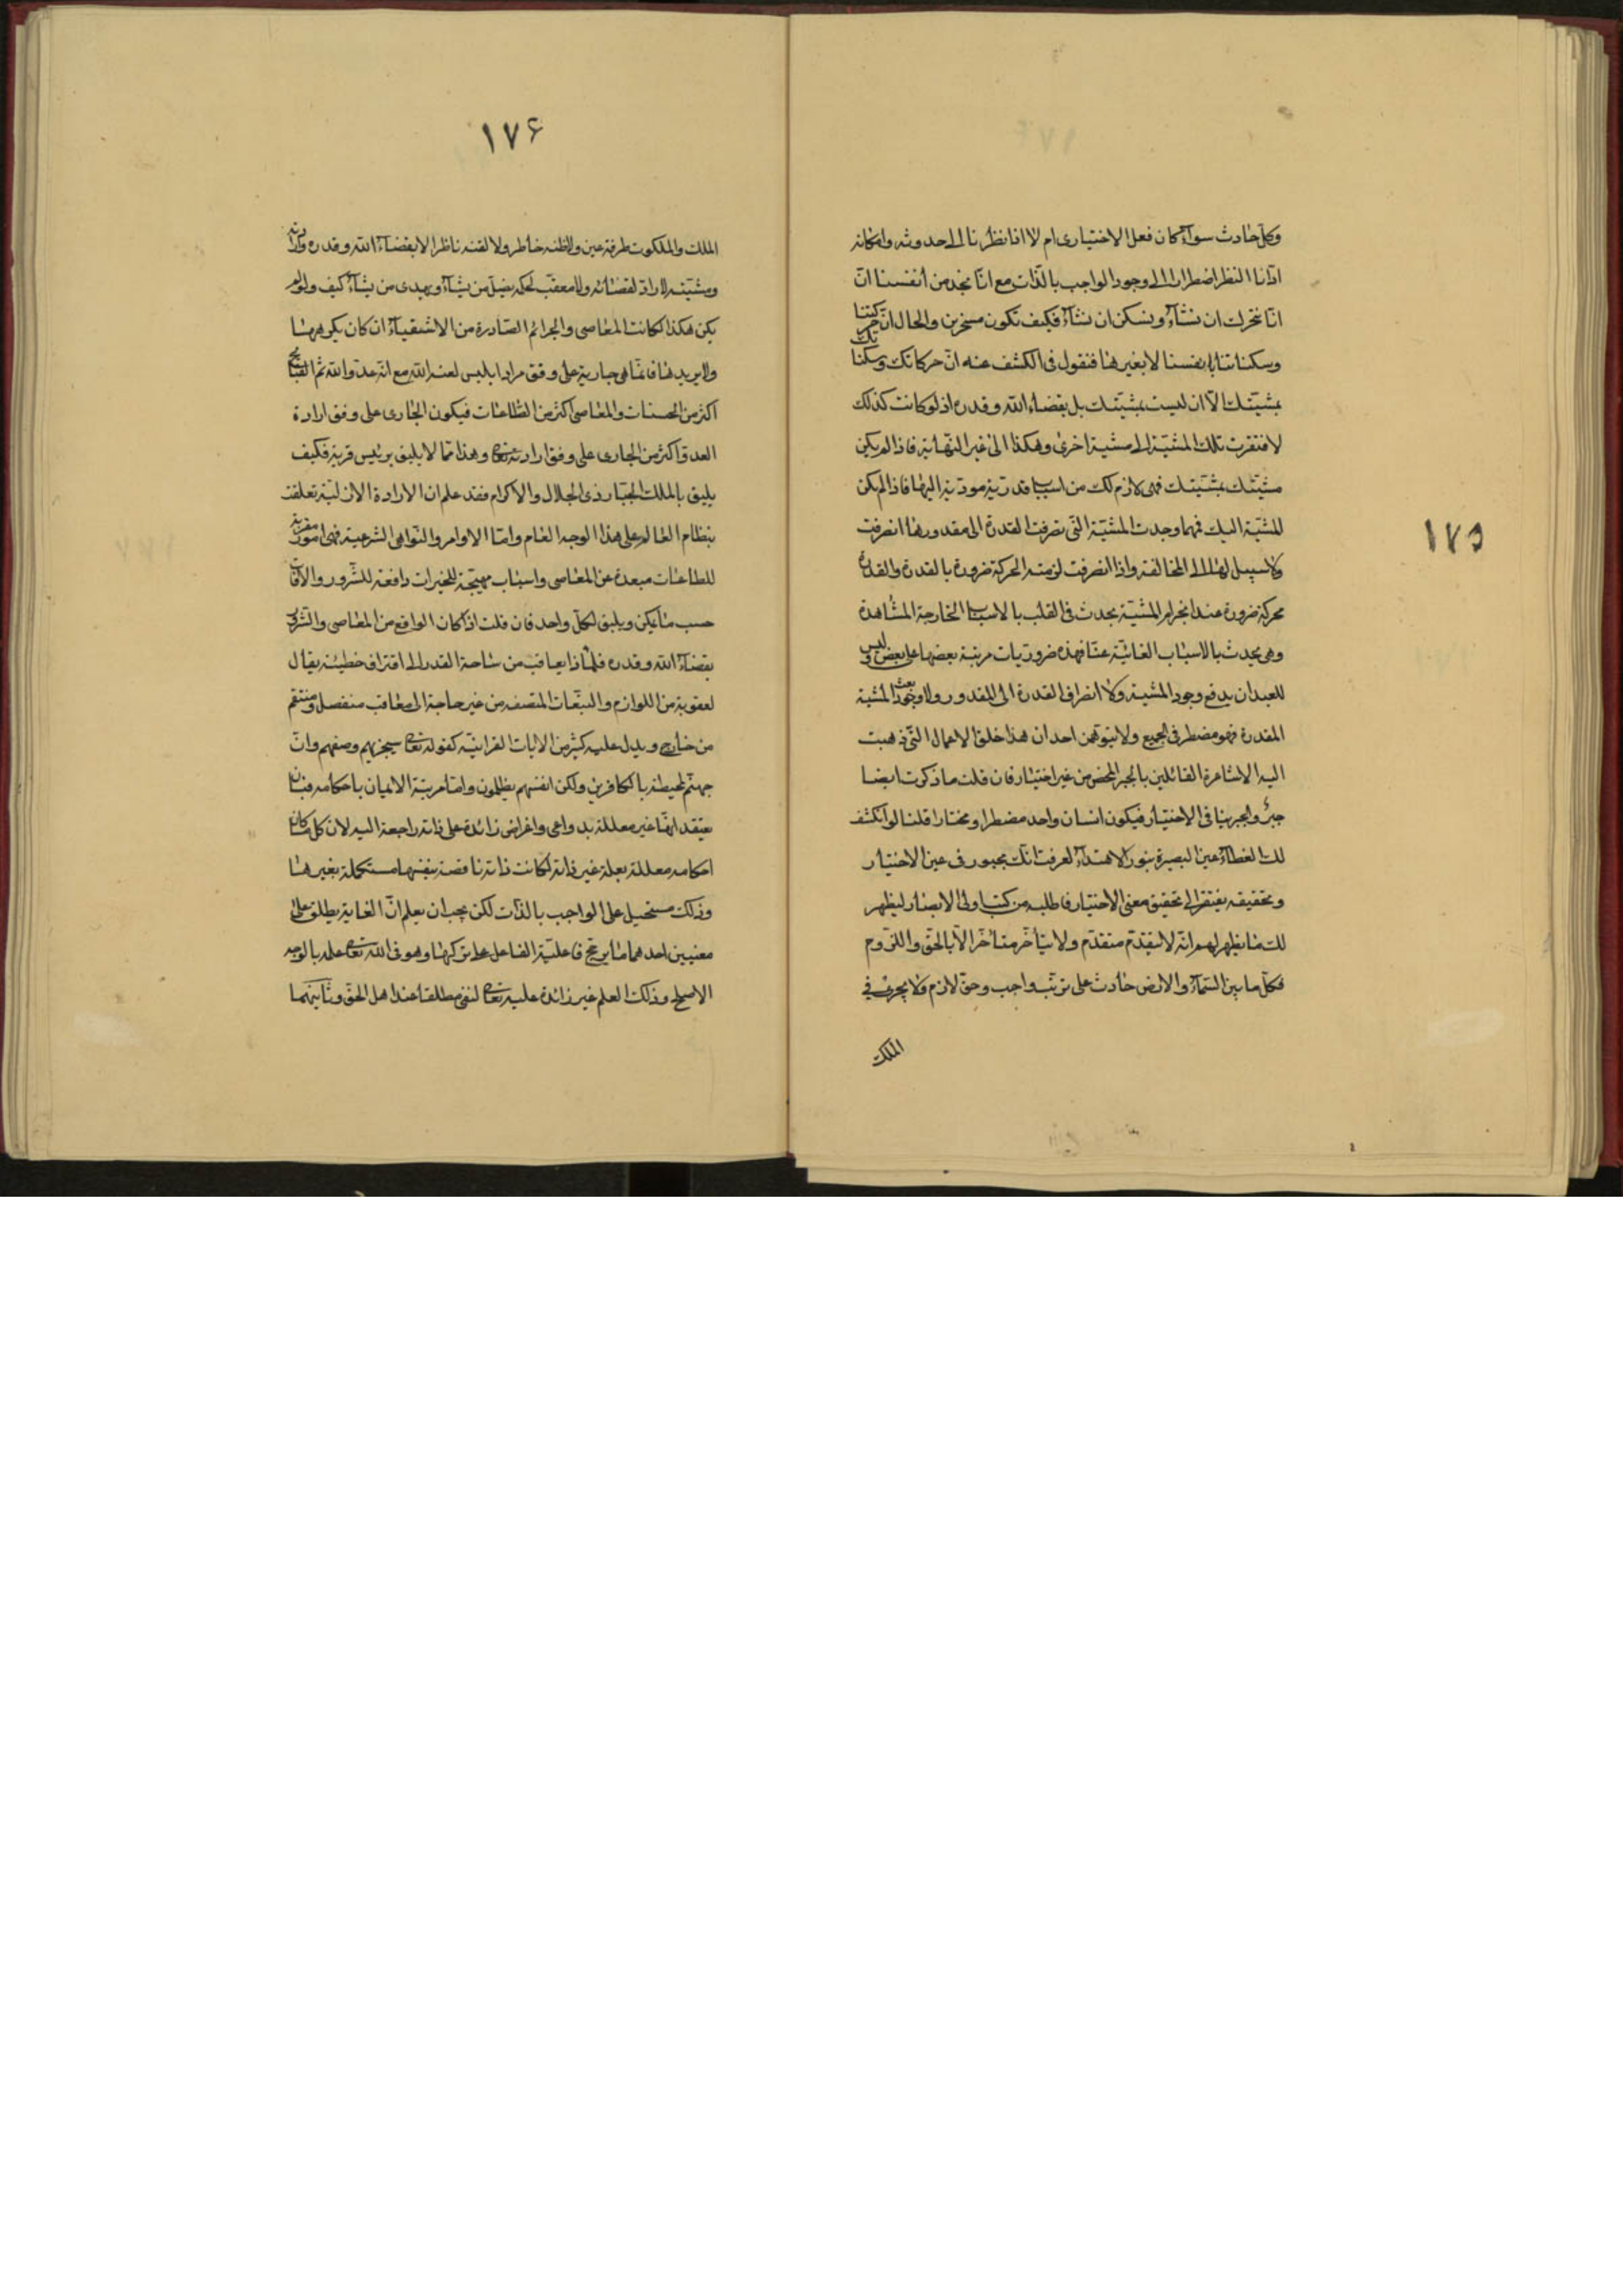 ١٧٥
وكل حادث سوآء كان فعل الاختيارى ام لا انا نظرنا الى حدوثه وامكانه
ادّانا النظر اضطرارا الى وجود الواجب بالذّات مع انّا نجد من أنفسنا انّ
انّا نتحرك ان نشآء ونسكن ان نشآء فكيف نكون مسخرين والحال انّ حركتنا
وسكناتنا بانفسنا لا بغيرها فنقول فى الكشف عنه انّ حركاتك وسكناتك
بمشيّتك الّا ان ليست بمشيّتك بل بقضاء الله وقدره اذ لو كانت كذلك
لافتقرت تلك المشيّة الى مشيّة اخرى وهكذا الى غير النّهاية فاذا لم يكن
مشيّتك بمشيّتك فهى لازم لك من اسباب قدريّة مودّية اليها فاذا لم يكن
المشيّة اليك فمهما وجدت المشيّة التى تصرفت القدرة الى مقدورها انصرفت
ولا سبيل لها الى المخالفة واذا انصرفت لزمته الحركة ضرورة بالقدرة والقدرة
محركة ضرورة عند انجزام المشيّة يحدث فى القلب بالاسباب الخارجة المشاهدة
وهى يحدث بالاسباب الغائبة عنّا فهذه ضروريات مرتبة بعضها على بعض ليس فى
للعبد ان يدفع وجود المشية ولا انصراف القدرة الى المقدور ولا وجود بعث المشية
المقدرة فهو مضطر فى الجميع ولا يتوهّمن احد ان هذا خلق الاعمال التى ذهبت
اليه الاشاعرة القائلين بالجبر المحض من غير اختيار فان قلت ما ذكرت ايضا
جبر والجبر ينافى الاختيار فيكون انسان واحد مضطرا ومختارا قلنا لو انكشف
لك الغطاء عين البصيرة بنور الاهتداء لعرفت انّك مجبور فى عين الاختيار
وتحقيقه يفتقر الى تحقيق معنى الاختيار فاطلبه من كتب اولى الابصار ليظهر
لك ما يظهر لهم انّه لا يتقدّم متقدّم ولا يتأخّر متأخّر الّا بالحقّ واللّزوم
فكلّ ما بين السّمآء والارض حادث على ترتيب واجب وحقّ لازم ولا يجرى فى
الملك
١٧۶
الملك والملكوت طرفة عين ولا فلتة خاطر ولا لفتة ناظر الا بقضاء الله وقدره وارادته
ومشيّته لا رادّ لقضائه ولا معقّب لحكمه يضلّ من يشآء ويهدى من يشآء كيف ولو لم
يكن هكذا لكانت المعاصى والجرائم الصّادرة من الاشقيآء ان كان يكرهها
ولا يريدها فانّما هى جارية على وفق مراد ابليس لعنه الله مع انّه عدوّ الله ثم القبائح
اكثر من الحسنات والمعاصى اكثر من الطّاعات فيكون الجارى على وفق ارادة
العدوّ اكثر من الجارى على وفق ارادته تعالى وهذا ممّا لا يليق برئيس قرية فكيف
يليق بالملك الجبّار ذى الجلال والاكرام فقد علم ان الارادة الازليّة تعلقت
بنظام العالم على هذا الوجه العام وامّا الاوامر والنّواهى الشرعية فهى امور مقربة
للطاعات مبعدة عن المعاصى واسباب مهيّجة للخيرات دافعة للشّرور والآفات
حسب ما يمكن ويليق لكلّ واحد فان قلت اذا كان الواقع من المعاصى والشّرور
بقضاء الله وقدره فلماذا يعاقب من ساحة القدر الى اقتراف خطيئة يقال
العقوبة من اللوازم والتّبعات المتصفة من غير حاجة الى معاقب منفصل ومنتقم
من خارج ويدل عليه كثير من الآيات القرانيّة كقوله تعالى سيجزيهم وصفهم وانّ
جهنّم لمحيطة بالكافرين ولكن انفسهم يظلمون وامّا مرتبة الايمان باحكامه فبان
يعتقد انّها غير معللة بدواعى واغراض زائدة على ذاته راجعة اليه لان كل ما كان
احكامه معللة بعلة غير ذاته لكانت ذاته ناقصة بنفسها مستكملة بغيرها
وذلك مستحيل على الواجب بالذّات لكن يجب ان يعلم انّ الغاية يطلق على
معنيين احدهما ما يرجّح فاعليّة الفاعل على تركها وهو فى الله تعالى علمه بالوجه
الاصلح وذلك العلم غير زائدة عليه تعالى لنفى مطلقا عند اهل الحقّ وثانيهما